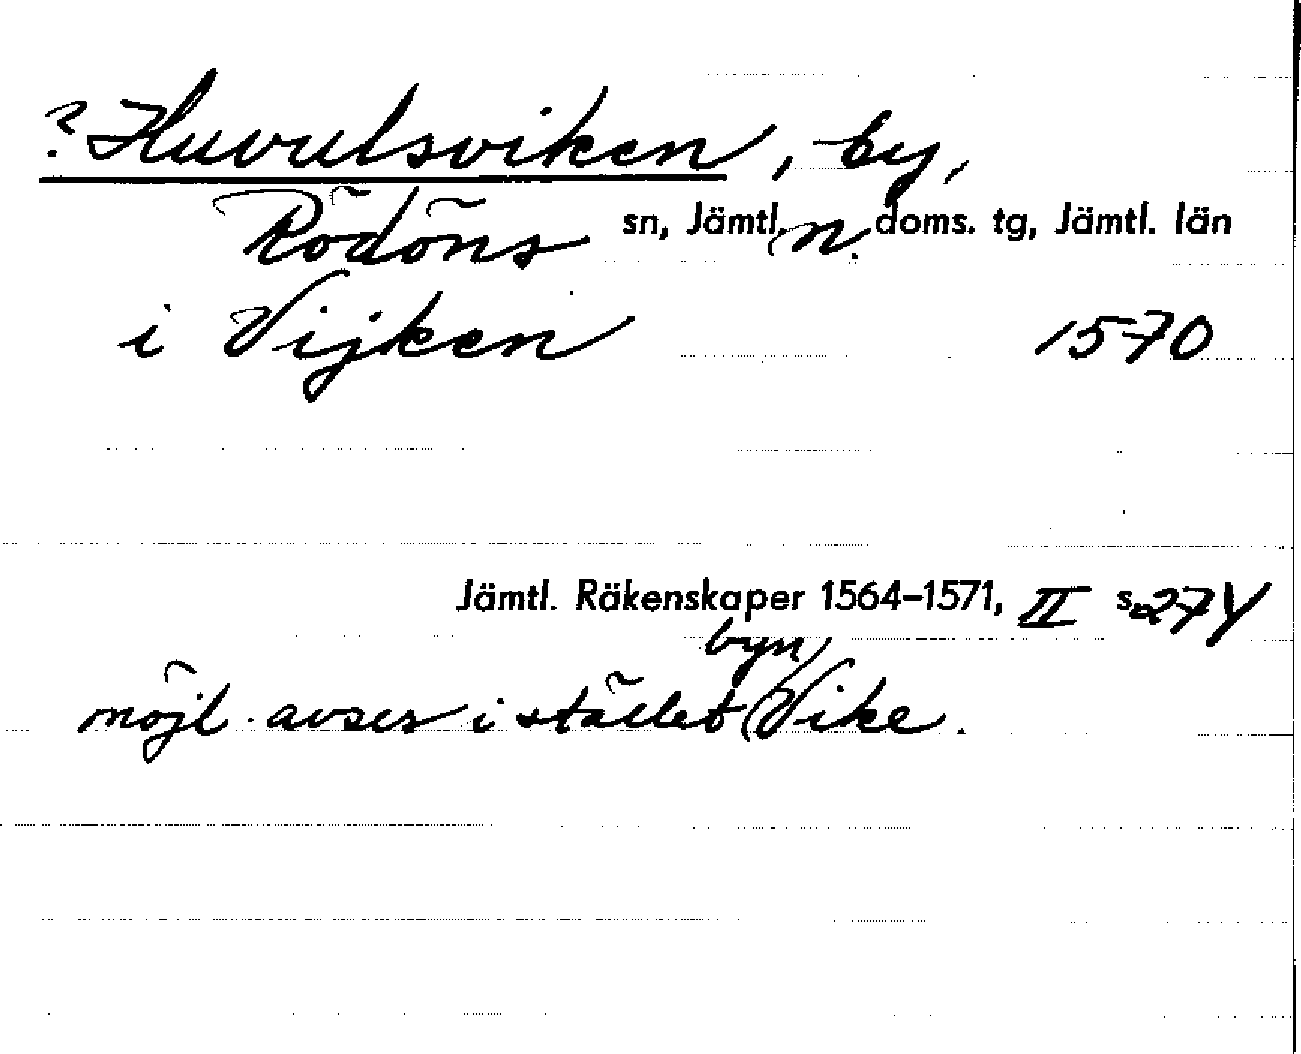 ? Huvulsviken, by,
Rödöns sn, Jämtl. n. doms. tg, Jämtl. län
i Vijken 1570
Jämtl. Räkenskaper 1564–1571, II s. 274
möjl. avser i stället byn Vike.